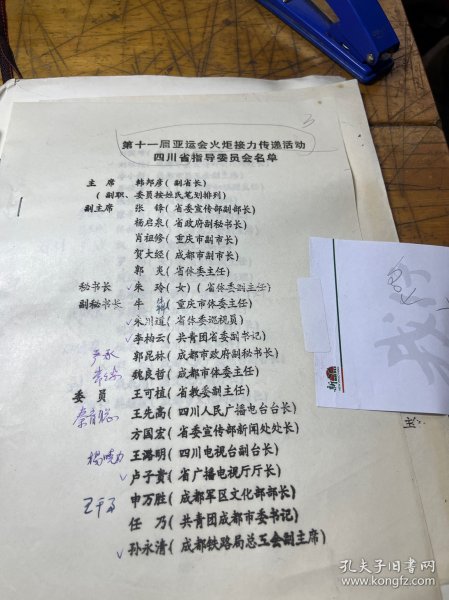 第十一届亚运会火炬接力传递活动
四川省指导委员会名单
主席 韩邦彦(副省长)
(副职、委员按姓氏笔划排列)
副主席 张锋(省委宣传部副部长)
杨启泉(省政府副秘书长)
肖祖修(重庆市副市长)
贺大经(成都市副市长)
郭炎(省体委主任)
秘书长 朱玲(女)(省体委副主任)
副秘书长 牛(重庆市体委主任)
朱川道(省体委巡视员)
李柏云(共青团省委副书记)
郭昆林(成都市政府副秘书长)
魏良哲(成都市体委主任)
委员 王可植(省教委副主任)
王先高(四川人民广播电台台长)
方国宏(省委宣传部新闻处处长)
王潞明(四川电视台副台长)
卢子贵(省广播电视厅厅长)
申万胜(成都军区文化部部长)
任乃(共青团成都市委书记)
孙永清(成都铁路局总工会副主席)
孔夫子旧书网
https://book.kongfz.com/